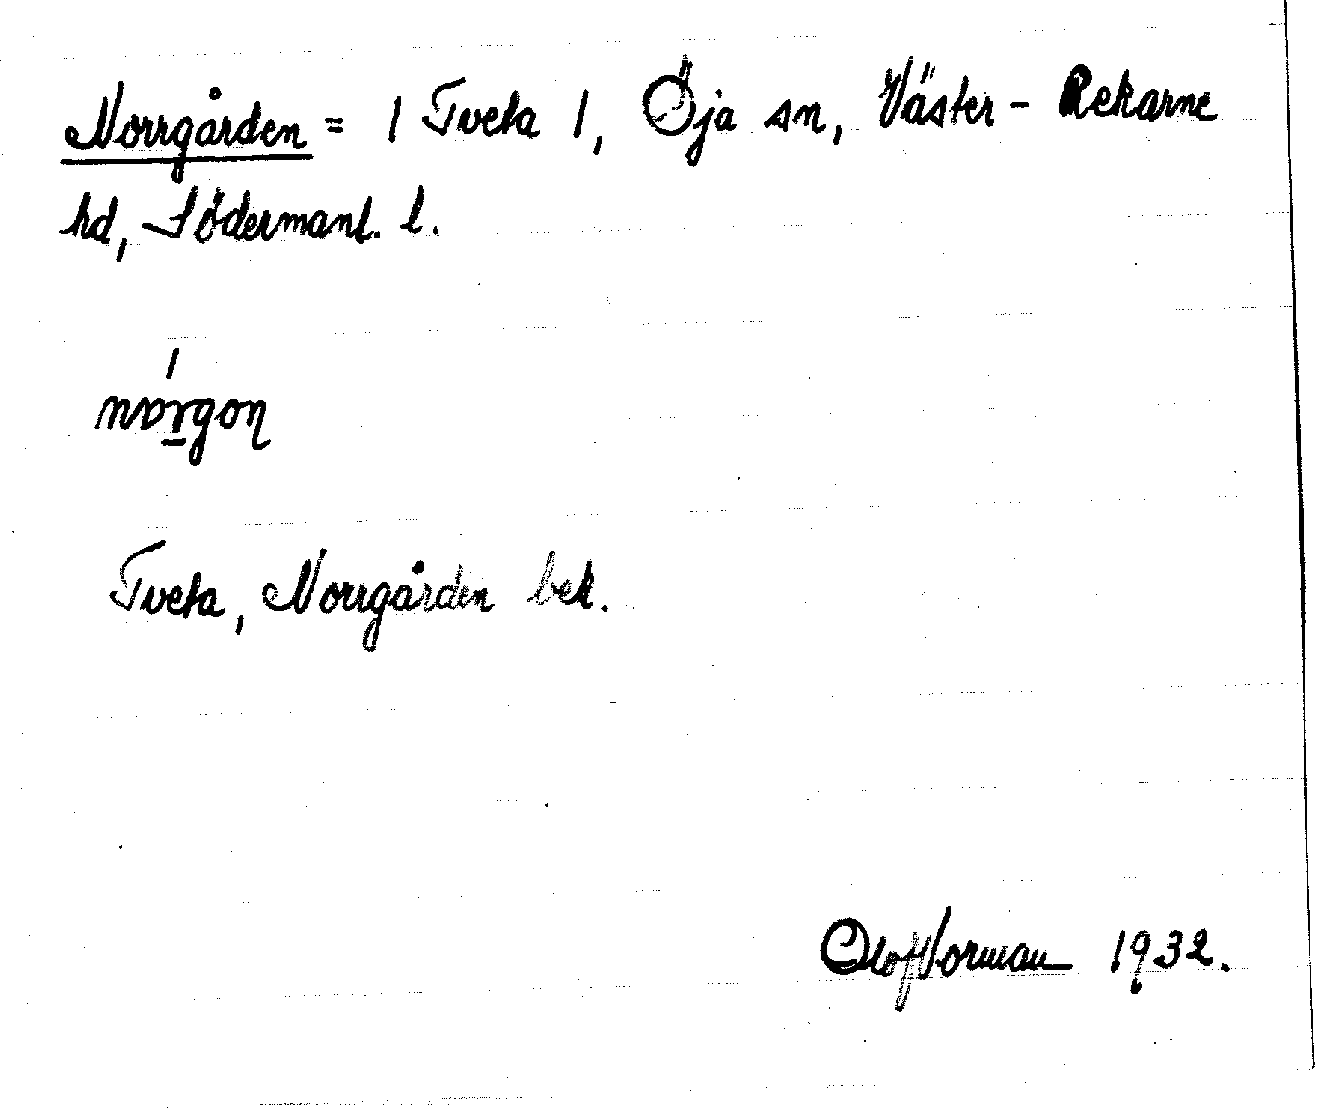 Norrgården = 1 Tveta 1, Öja sn, Väster-Rekarne
hd, Södermanl. l.
Tveta, Norrgården bek.
Olof Norman 1932.